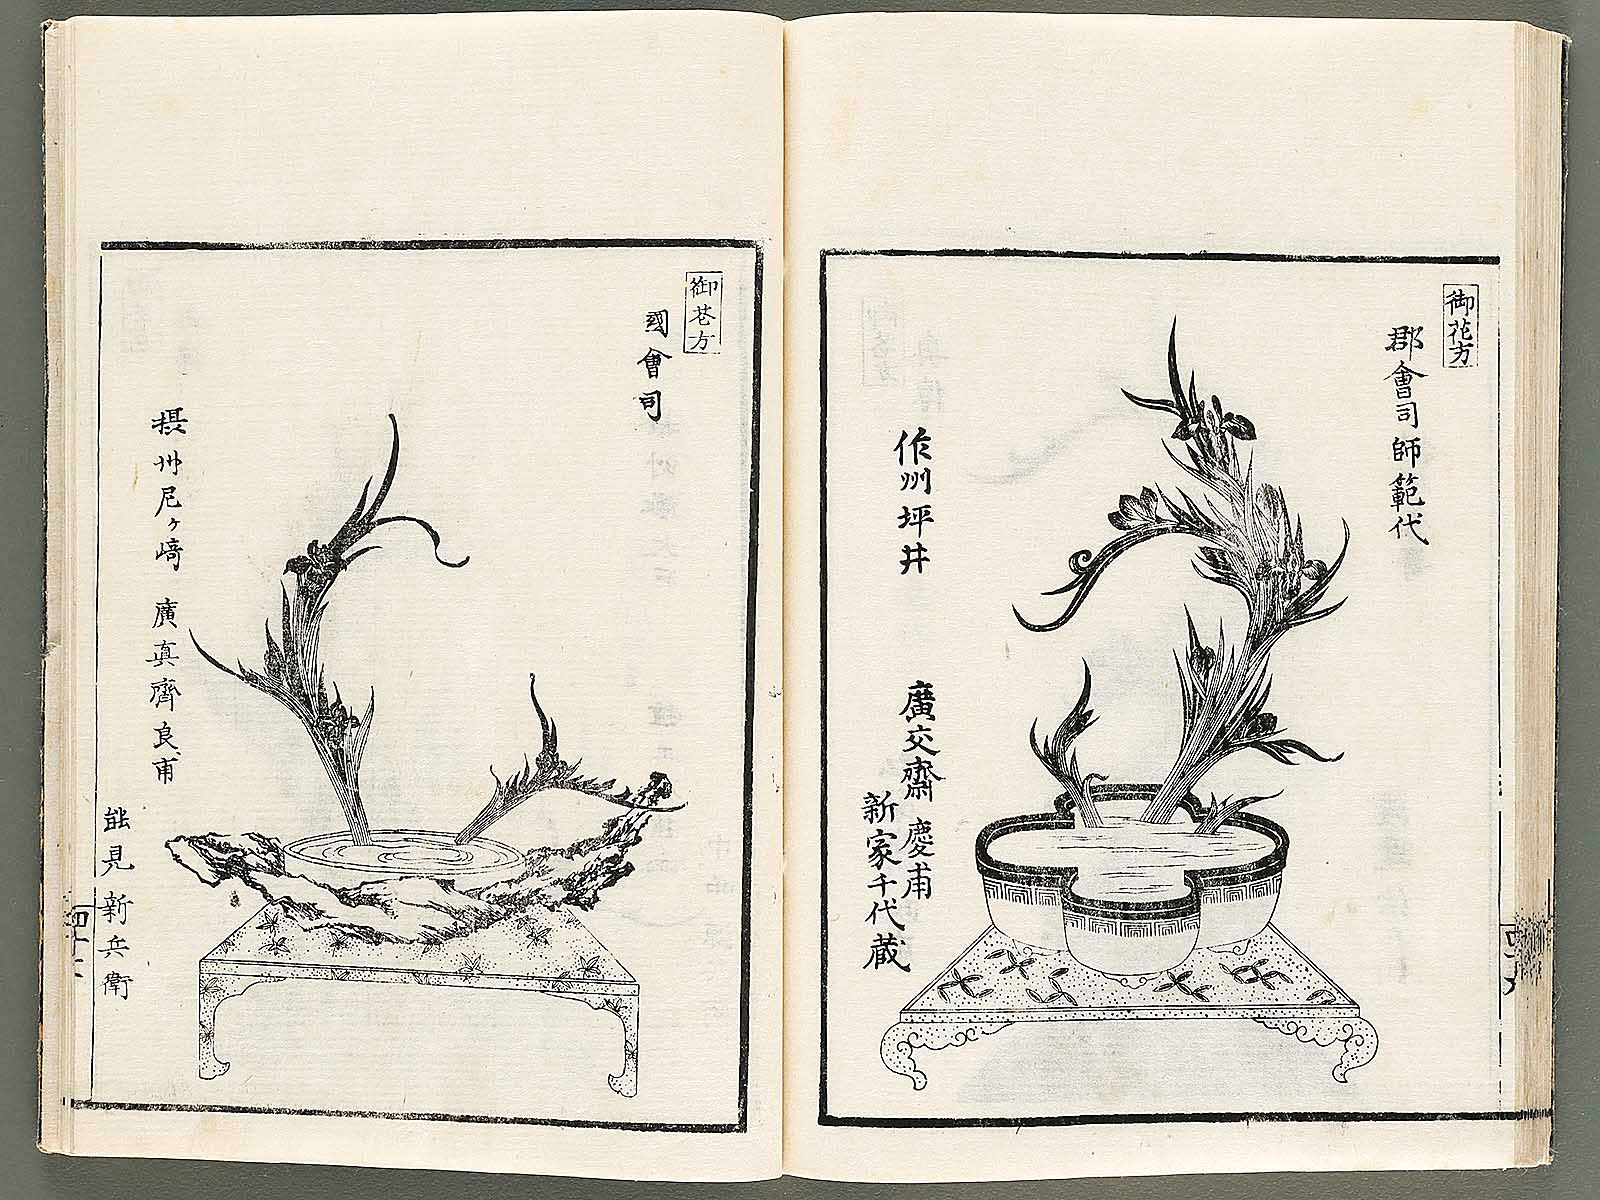 御花方
郡會司師範代
作州坪井
廣交齋慶甫
新家千代蔵
御花方
國會司
摂州尼ヶ﨑
廣真齋良甫
能見新兵衛